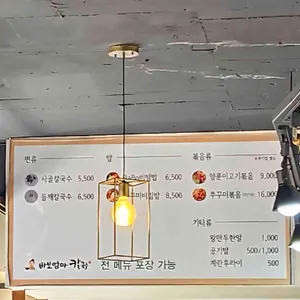 면류
시골칼국수 5,500
들깨칼국수 6,500
밥
비빔밥 6,500
비빔밥 8,500
볶음류
양푼이고기볶음 9,000
쭈꾸미볶음 16,000
기타류
왕만두한알 1,000
공기밥 500/1,000
계란후라이 500
바보엄마 칼국수
전 메뉴 포장 가능